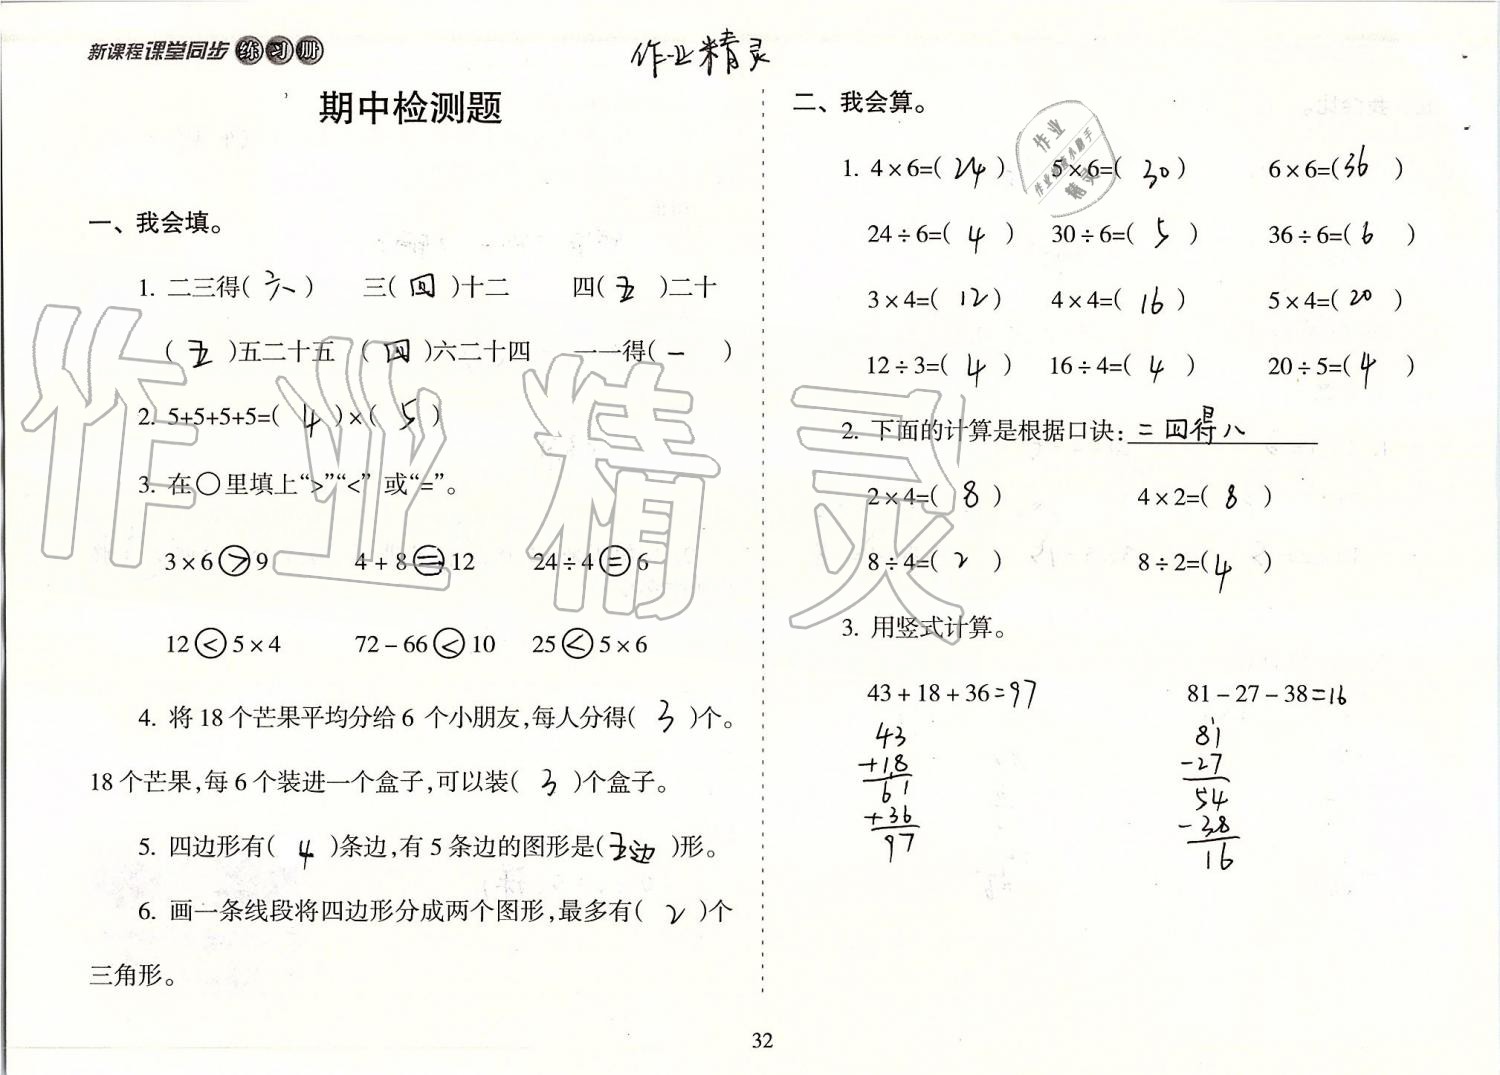 新课程课堂同步练习册
作业精灵
期中检测题
一、我会填。
1. 二三得( 六 ) 三( 四 )十二 四( 五 )二十
( 五 )五二十五 ( 四 )六二十四 一一得( 一 )
2. 5+5+5+5=( 4 )×( 5 )
3. 在○里填上“>”“<” 或“=”。
3×6 > 9 4+8 = 12 24÷4 = 6
12 < 5×4 72-66 < 10 25 < 5×6
4. 将18个芒果平均分给6 个小朋友,每人分得( 3 )个。
18个芒果,每6个装进一个盒子,可以装( 3 )个盒子。
5. 四边形有( 4 )条边,有5条边的图形是( 五边 )形。
6. 画一条线段将四边形分成两个图形,最多有( 2 )个
三角形。
二、我会算。
1. 4×6=( 24 ) 5×6=( 30 ) 6×6=( 36 )
24÷6=( 4 ) 30÷6=( 5 ) 36÷6=( 6 )
3×4=( 12 ) 4×4=( 16 ) 5×4=( 20 )
12÷3=( 4 ) 16÷4=( 4 ) 20÷5=( 4 )
2. 下面的计算是根据口诀: 二四得八
2×4=( 8 ) 4×2=( 8 )
8÷4=( 2 ) 8÷2=( 4 )
3. 用竖式计算。
43+18+36=97 81-27-38=16
43 81
+18 -27
61 54
+36 -38
97 16
32
作业精灵
作业
作业检查小助手
精灵